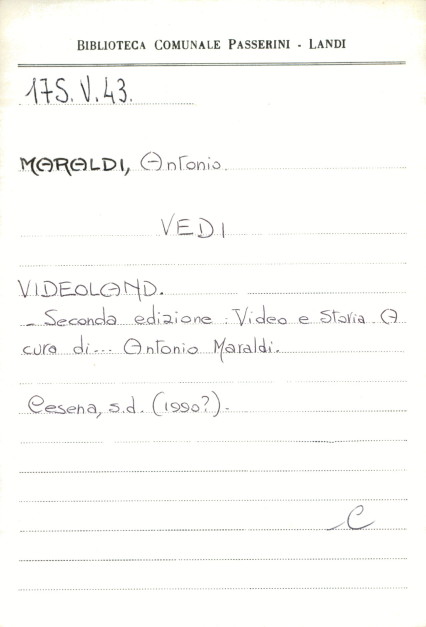 BIBLIOTECA COMUNALE PASSERINI - LANDI
17S.V.43.
MARALDI, Antonio.
VEDI
VIDEOLAND.
- Seconda edizione : Video e Storia. A
cura di... Antonio Maraldi.
Cesena, s.d. (1990?).
C